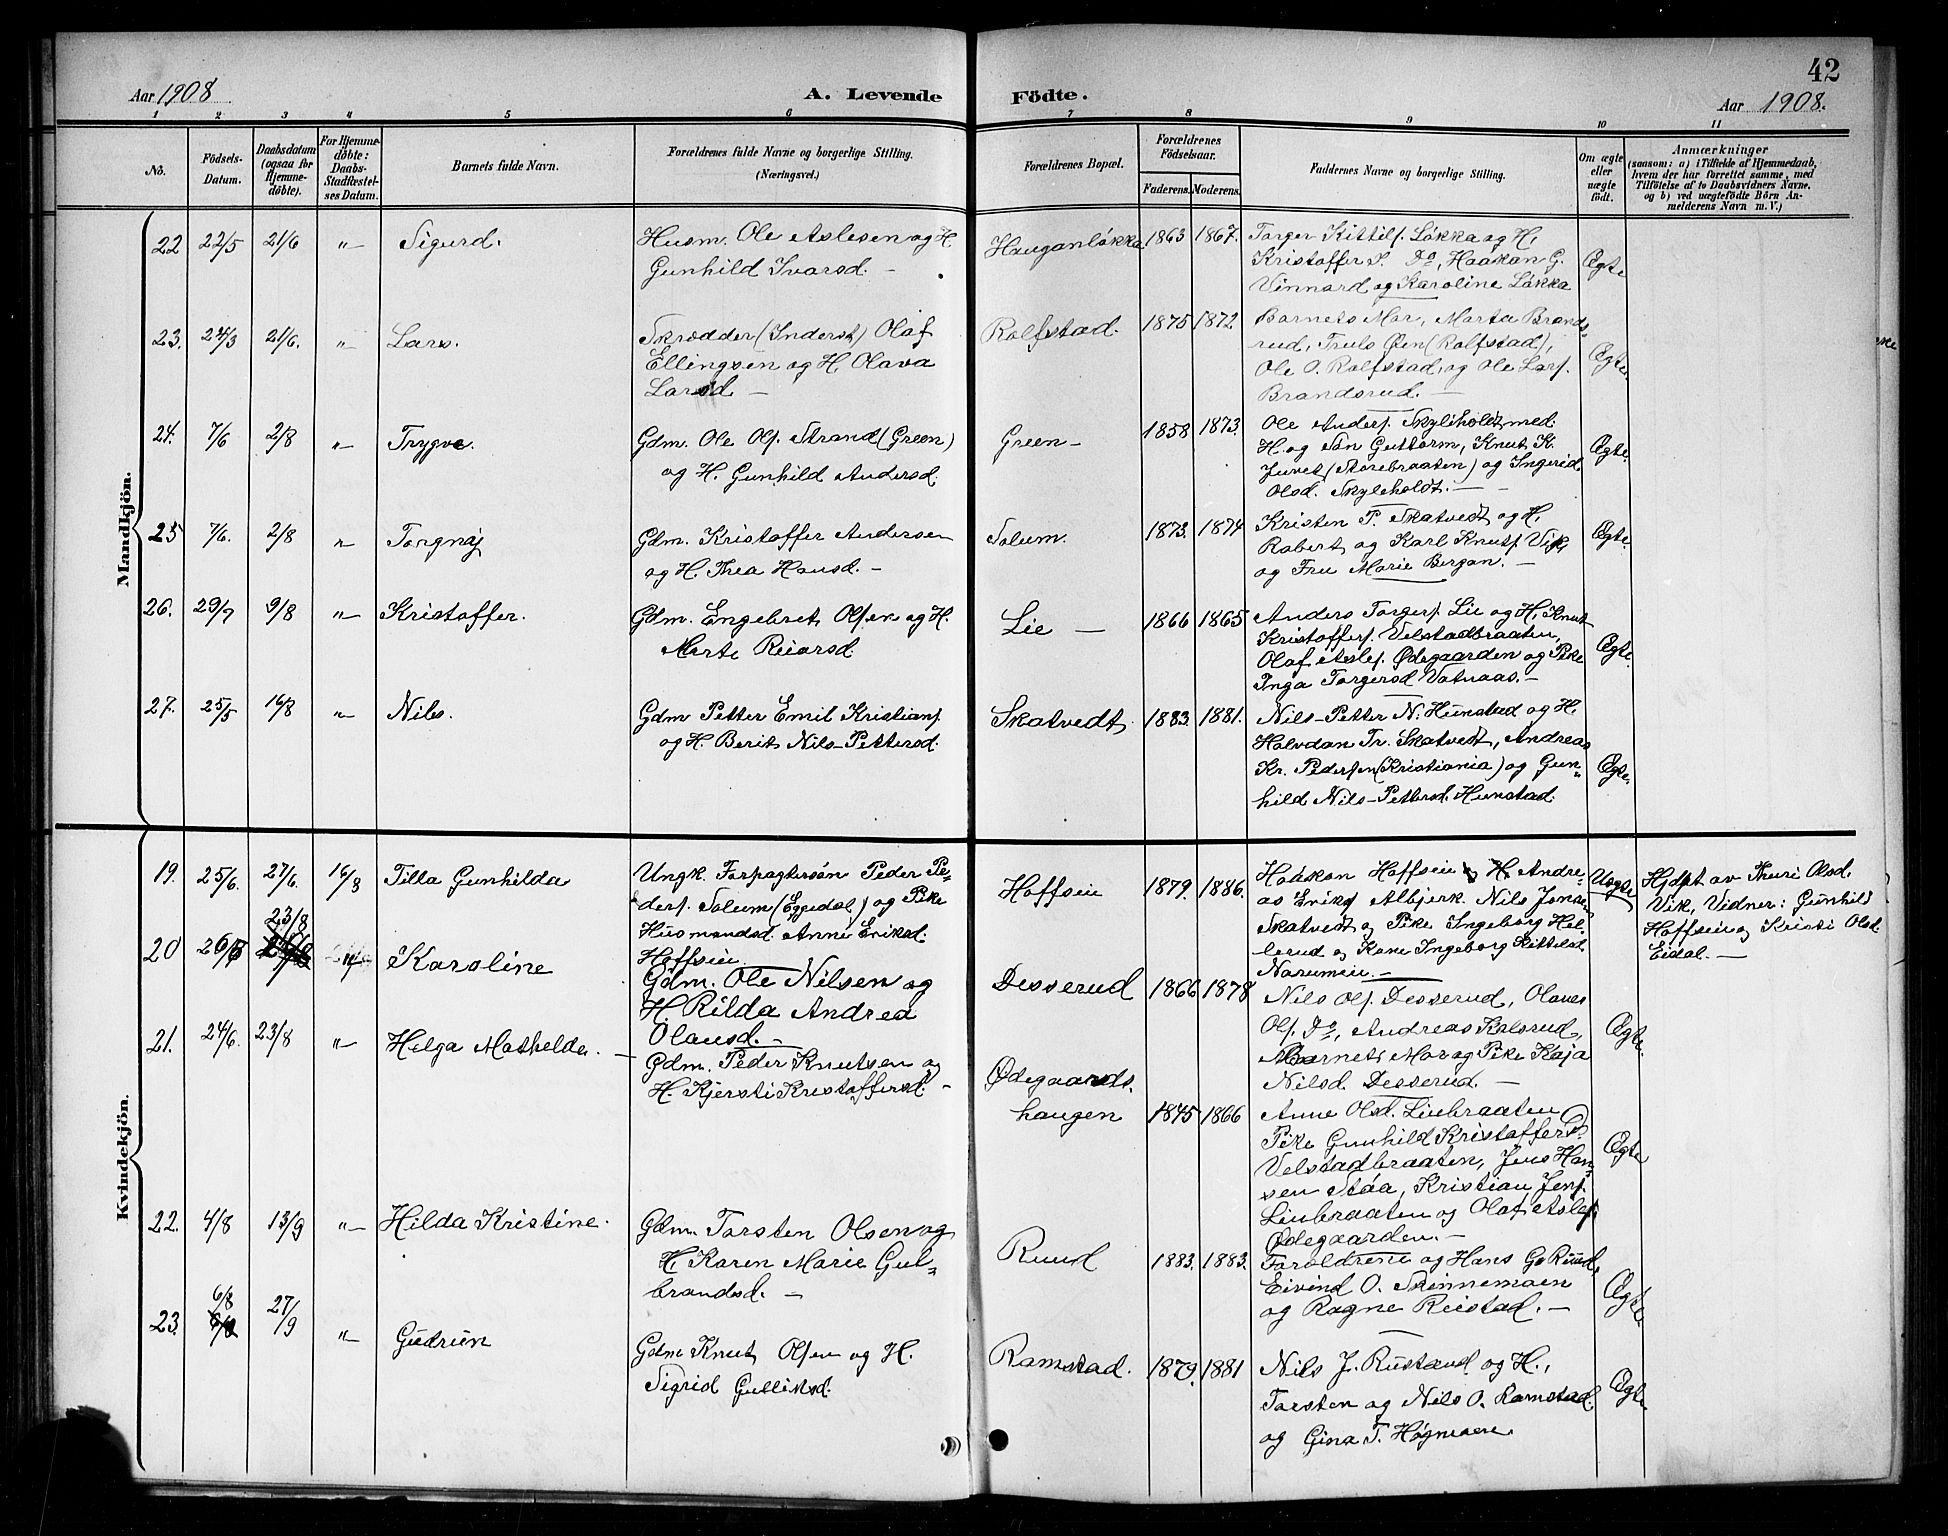 42
Aar 1908
A. Levende
Födte.
Aar 1908.
1 2 3 4 5 6 7 8 9 10 11
No.
Födsels-
Datum.
Daabsdatum
(ogsaa for
Hjemme-
döbte).
For Hjemme-
döbte:
Daabs-
Stadfæstel-
ses Datum.
Barnets fulde Navn.
Forældrenes fulde Navne og borgerlige Stilling.
(Næringsvei.)
Forældrenes Bopæl.
Forældrenes
Födselsaar.
Faderens. Moderens.
Faddernes Navne og borgerlige Stilling.
Om ægte
eller
uægte
födt.
Anmærkninger
(saasom: a) i Tilfælde af Hjemmedaab,
hvem der har forrettet samme, med
Tilföielse af to Daabsvidners Navne,
og b) ved uægtefödte Börn An-
melderens Navn m. V.)
Mandkjön.
22 22/5 21/6 "
Sigurd.
Husm. Ole Aslesen og H.
Gunhild Ivarsd. –
Hauganløkka
1863 1867.
Torger Kittils. Løkka og H.
Kristoffer T. Do, Haakon G.
Vinnard og Karoline Løkka
Ægte
23. 24/3 21/6. "
Lars.
Skrædder (Inderst) Olaf
Ellingsen og H. Olava
Larsd –
Rolfstad.
1875 1872
Barnets Mor, Marta Brands-
rud, Truls Øen (Rolfstad),
Ole O. Rolfstad, og Ole Lars.
Brandsrud. –
Ægte.
24. 7/6 2/8 "
Trygve.
Gdm. Ole Ols. Strand (Green)
og H. Gunhild Andersd.
Green –
1858 1873.
Ole Anders. Skyleholdt med
H. og Søn Guttorm, Knut K.
Juvet (Storebraaten) og Ingerid
Olsd. Skyleholdt. –
Ægte.
25 7/6. 2/8 "
Torgnøj
Gdm. Kristoffer Andersen
og H. Thea Hansd. –
Solum.
1873. 1874
Kristen P. Skatvedt og H.
Robert og Karl Knuts. Vik,
og Fru Marie Bergan. –
Ægte.
26. 29/7 9/8 "
Kristoffer.
Gdm. Engebret Olsen og H.
Marte Reiarsd
Lie –
1866 1865
Anders Torgers. Lie og H. Knut
Kristoffers. Velstadbraaten,
Olaf Asles. Ødegaarden og Pike
Inga Torgersd Vatnaas. –
Ægte.
27. 25/5 16/8 "
Nils.
Gdm Petter Emil Kristians.
og H. Berit Nils-Pettersd.
Skatvedt
1883. 1881.
Nils-Petter N. Hunstad og H.
Halvdan Tr. Skatvedt, Andreas
Kr. Pedersen (Kristiania) og Gun-
hild Nils-Pettersd. Hunstad.
Ægte.
Kvindekjön.
19. 25/6. 27/6. 16/8
Tilla Gunhilda
Ungk. Forpagtersøn Peder Pe-
ders. Solum (Eggedal) og Pike
Husmandsd. Anne Eriksd.
Hoffsein
Hoffsein
1879. 1886.
Haakon Hoffsein og H. Andre-
as Eriks Albjerk. Nils Jensen
Skatvedt og Pike Ingeborg Hol-
lerud og Kone Ingeborg Kittelsd.
Narumein. –
Uægte
Hjdpt av Thuri Olsd.
Vik, Vidner: Gunhild
Hoffsein og Kristi Olsd.
Eidal. –
20 26/6 23/8
Karoline
Gdm. Ole Nilsen og
H. Rilda Andrea
Olausd. –
Desserud
1866 1878
Nils Ols. Desserud, Olaves
Ols. Do, Andreas Kolsrud,
Barnets Mor og Pike Kaja
Nilsd. Desserud. –
Ægte.
21. 24/6. 23/8 "
Helga Mathelde. –
Gdm. Peder Knutsen og
H. Kjersti Kristoffersd. –
Ødegaards-
haugen
1845 1866
Anne Olsd. Linbraaten
Pike Gunhild Kristoffersd.
Velstadbraaten, Jens Han-
sen Staa, Kristian Jens.
Linbraaten og Olaf Asles.
Ødegaarden. –
Ægte
22. 4/8 13/9 "
Hilda Kristine.
Gdm. Torsten Olsen og
H. Karen Marie Gul-
brandsd. –
Ruud
1883. 1883.
Forældrene og Hans G. Ruud,
Eivind O. Skinnemoen
og Ragne Reistad. –
Ægte.
23. 6/8 27/9 "
Gudrun
Gdm Knut Olsen og H.
Sigrid Gulliksd.
Ramstad.
1879. 1881
Nils J. Rustand og H.,
Torsten og Nils O. Ramstad.
og Gina T. Høgmoen.
Ægte.